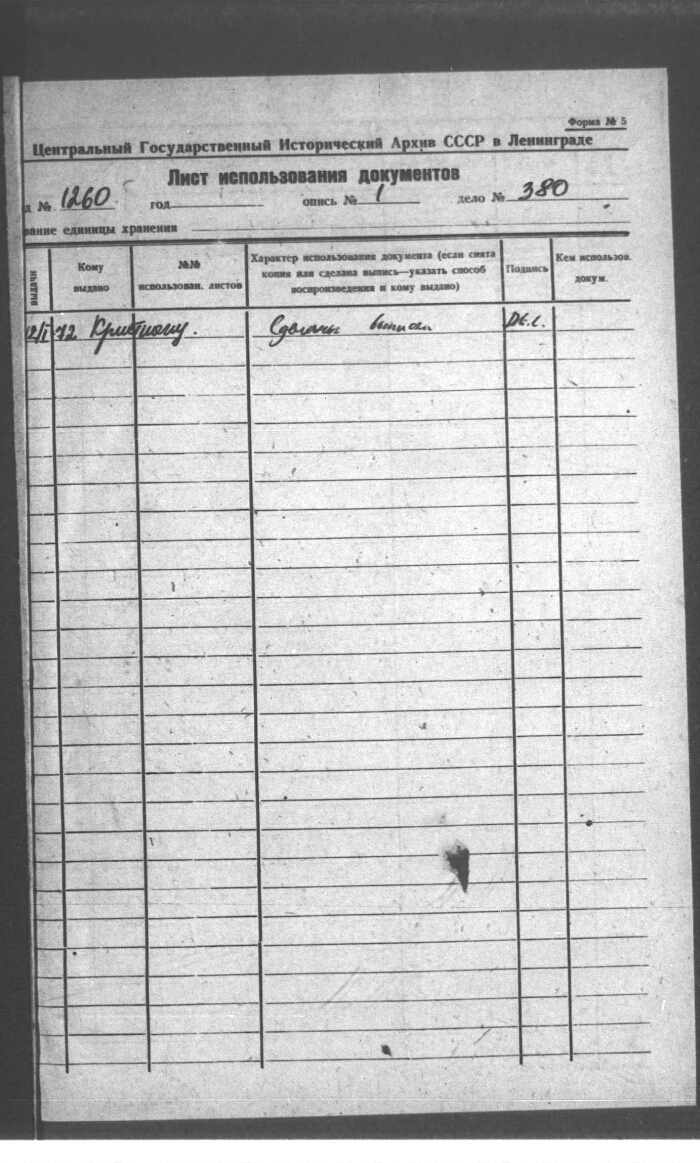 Форма № 5
Центральный Государственный Исторический Архив СССР в Ленинграде
Лист использования документов
д № 1260 год опись № 1 дело № 380
вание единицы хранения
выдачи
Кому выдано
№№ использован. листов
Характер использования документа (если снята копия или сделана выпись—указать способ воспроизведения и кому выдано)
Подпись
Кем использов. докум.
12/I 72 Сделаны выписки